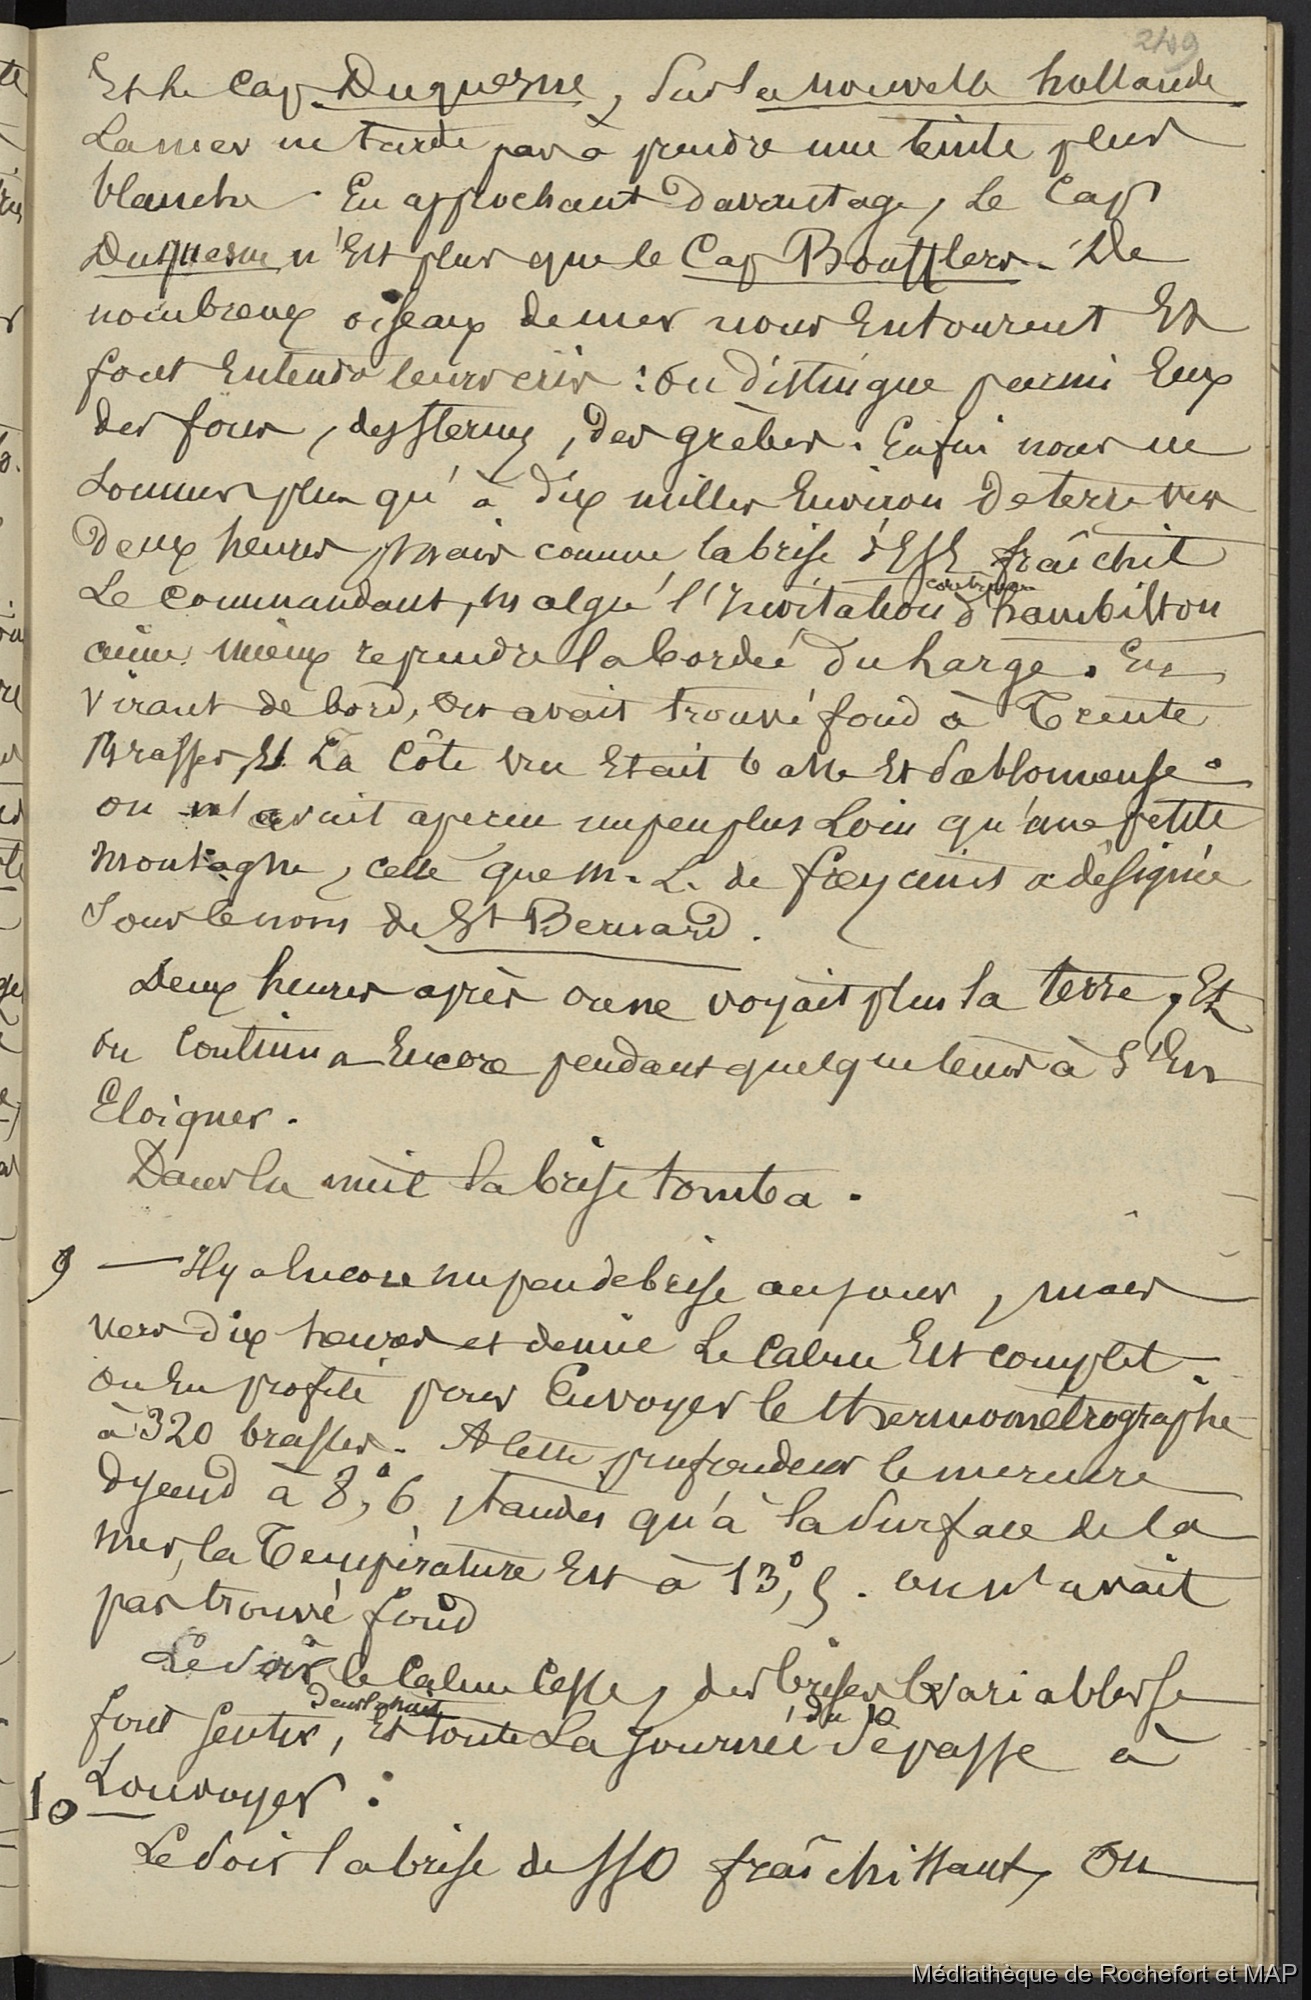 249
Est le Cap Duquesne, sur la nouvelle hollande
La mer ne tarde pas à prendre une teinte plus
blanche. En approchant davantage, Le Cap
Duquesne n'Est plus que le Cap Boufflers. De
nombreux oiseaux de mer nous Entourent Et
font Entendre leurs cris : on distingue parmi Eux
des fous, des sternes, des grèbes. Enfin nous ne
Sommes plus qu'à dix milles Environ de terre vers
Deux heures, Mais comme la brise d'ESE fraîchit
Le Commandant, Malgré l'Invitation d'hambilton
aime mieux reprendre la bordée du large. En
Virant de bord, on avait trouvé fond à Trente
Brasses, Et La Côte vue Etait basse Et Sablonneuse.
on n'avait aperçu un peu plus Loin qu'une petite
Montagne, celle que M. L. de freycinet a désignée
Sous le nom de St Bernard.
Deux heures après on ne voyait plus la terre, Et
on Continua Encore pendant quelque tems à S'En
Eloigner.
Dans la nuit la brise tomba.
9 — Il y a Encore un peu de brise au jour, mais
vers dix heures et demie Le Calme Est complet.
on En profite pour Envoyer le thermométrographe
à 320 brasses. A cette profondeur le mercure
descend à 8°,6, tandis qu'à la Surface de la
Mer, la Température Est à 13°,5. on n'avait
pas trouvé fond
Le Soir le Calme Cesse, des brises Variables se
dans la nuit
du 10
font Sentir, Et toute La Journée Se passe à
10 Louvoyer :
Le Soir la brise de SSO fraîchissant, On
Médiathèque de Rochefort et MAP